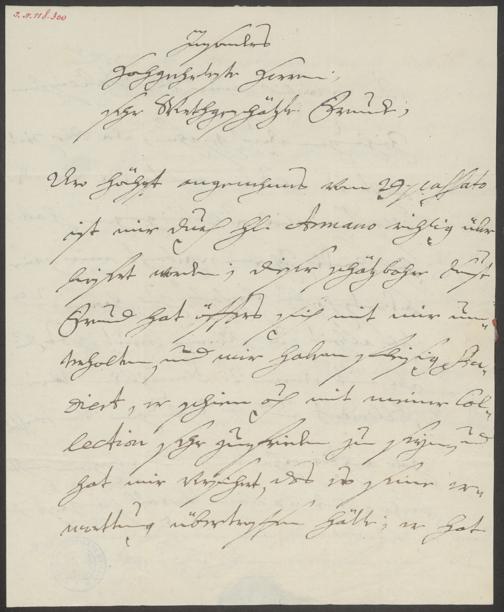 I. N. 118.300
Insonders
Hochgeehrteste Herren;
sehr Werthgeschäzte Freunde;
Dero höchst angenehmes vom 29 passato
ist mir durch H. Armano richtig über
liefert worden; dieser schäzbahre Kunst
Freund hat öffters sich mit mir unter
halten, und wir haben fleisig stu-
diert, er schien auch mit meiner Col-
lection sehr zufrieden zu seyn, und
hat mir versichert, das es seine er-
wartung übertroffen hätte; er hat